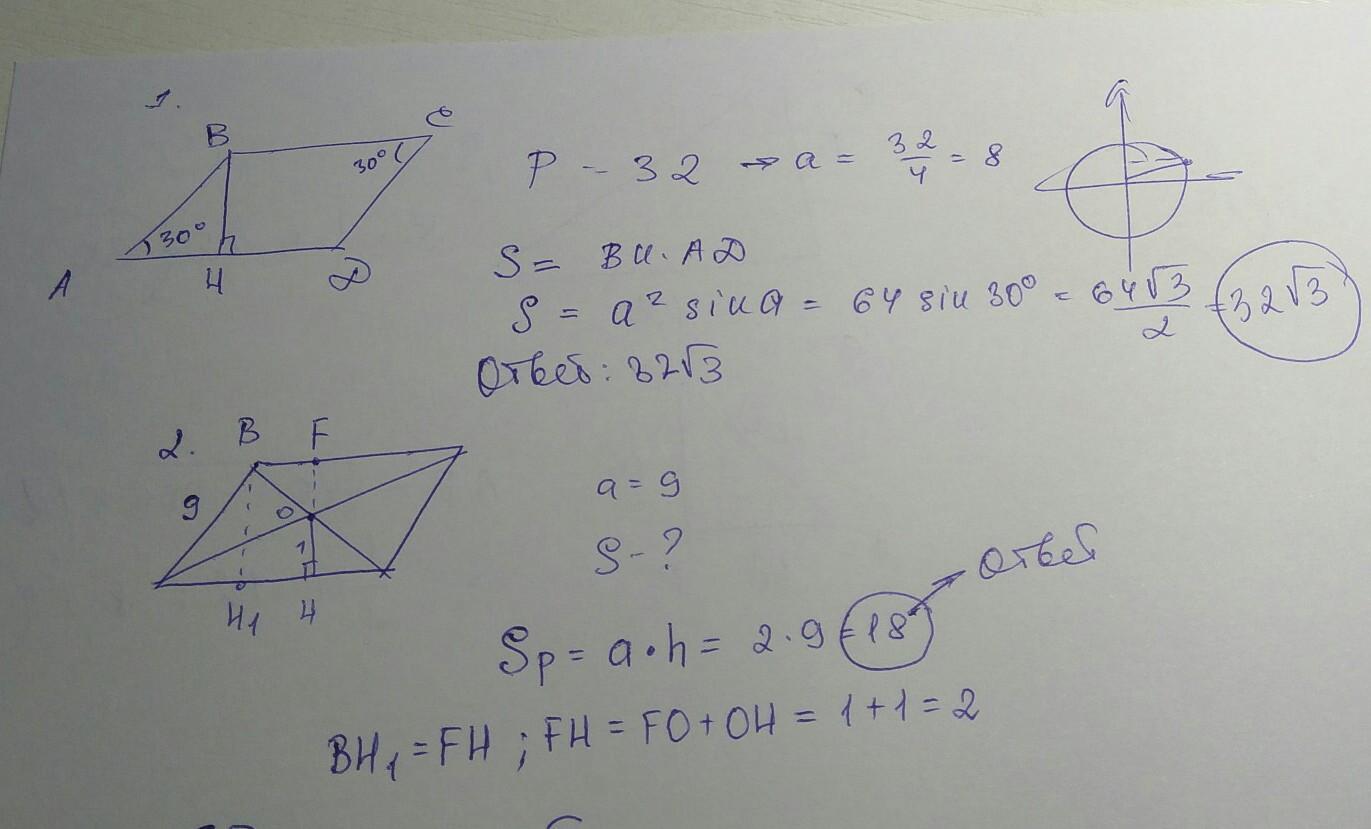 1.
B C
30°
30°
A H D
P - 32 → a = 32/4 = 8
S = BH · AD
S = a² sin a = 64 sin 30° = 64√3/2 = 32√3
Ответ: 32√3
2. B F
9 O
1
H₁ H
a = 9
S - ?
Sр = a · h = 2 · 9 = 18 → Ответ
BH₁ = FH ; FH = FO + OH = 1 + 1 = 2